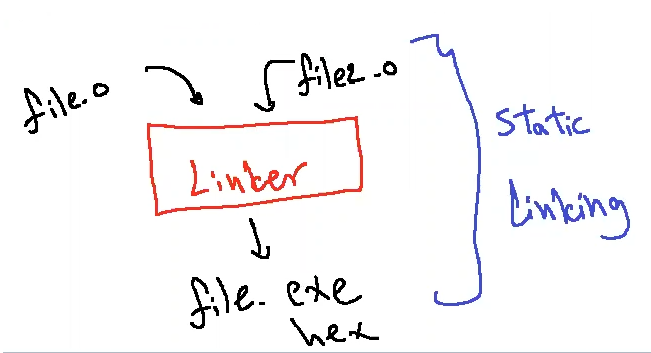 file.o
file2.o
Linker
file. exe
hex
static
linking